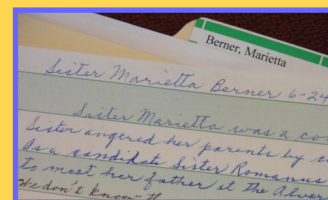 Berner, Marietta
Sister Marietta Berner 6-24
Sister Marietta was a co
Sister angered her parents by
As a candidate Sister Romanus
to meet her father at the Alver
We don't know